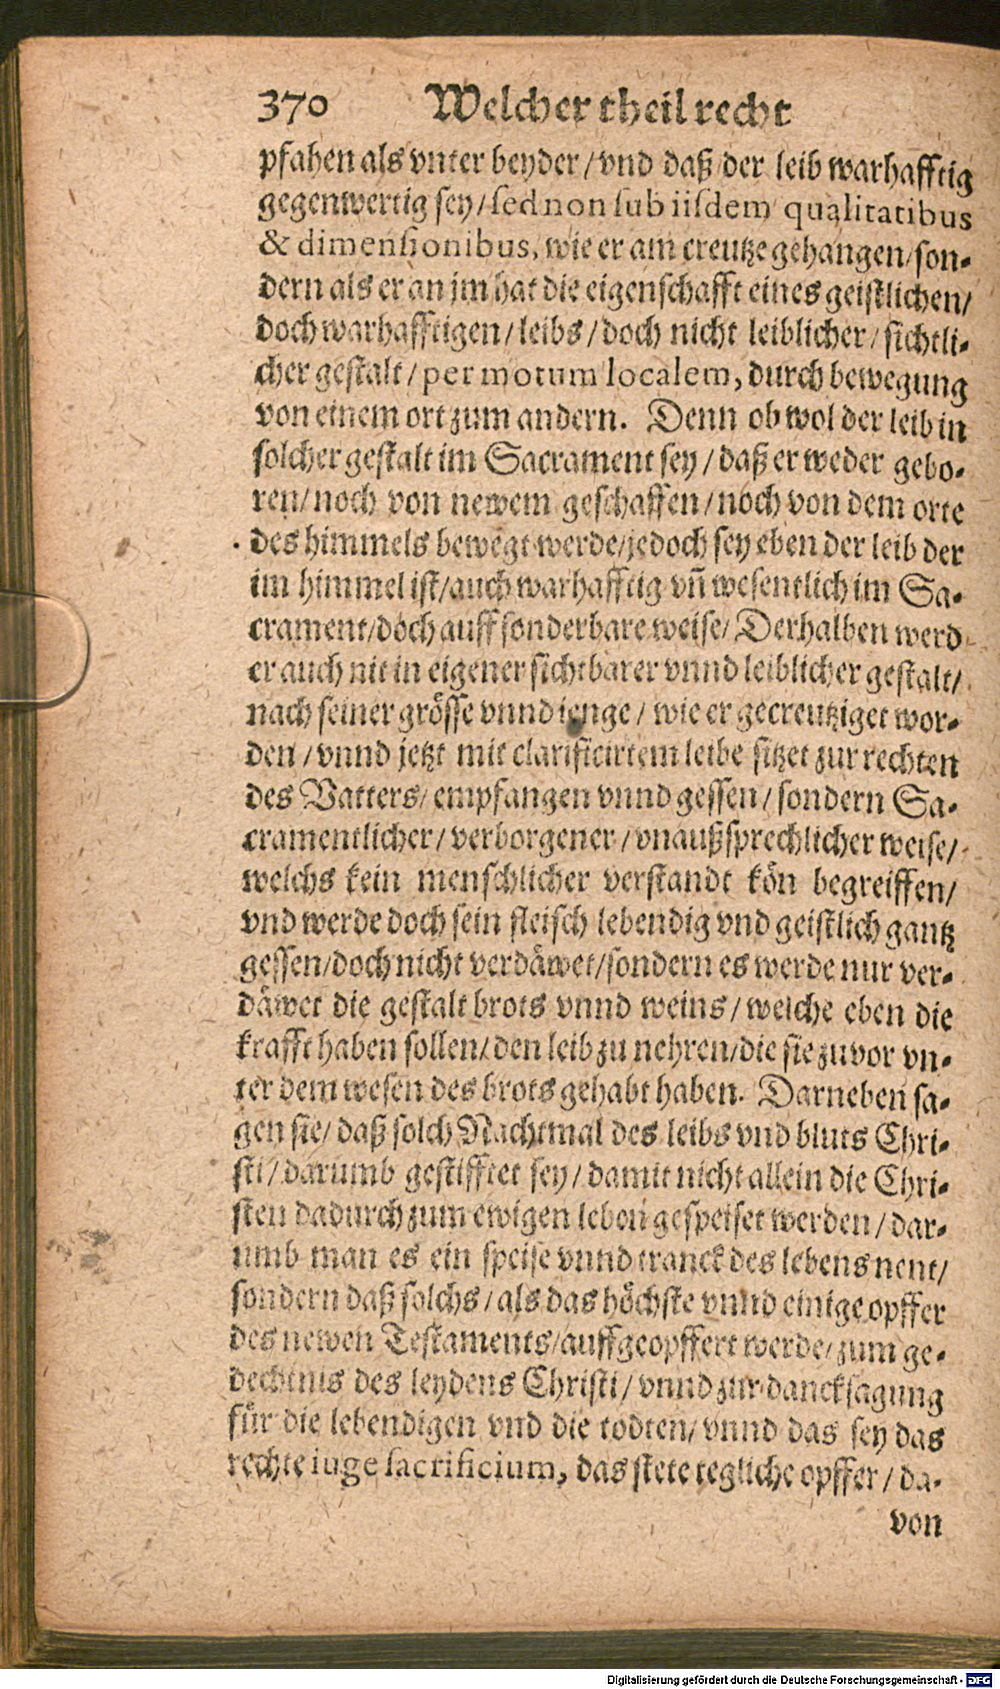 370 Welcher theil recht
pfahen als vnter beyder / vnd daß der leib warhafftig
gegenwertig sey / sed non sub iisdem qualitatibus
& dimensionibus, wie er am creutze gehangen / son-
dern als er an jm hat die eigenschafft eines geistlichen /
doch warhafftigen / leibs / doch nicht leiblicher / sichtli-
cher gestalt / per motum localem, durch bewegung
von einem ort zum andern. Denn ob wol der leib in
solcher gestalt im Sacrament sey / daß er weder gebo-
ren / noch von newem geschaffen / noch von dem orte
des himmels bewegt werde / jedoch sey eben der leib der
im himmel ist / auch warhafftig vñ wesentlich im Sa-
crament / doch auff sonderbare weise / Derhalben werd
er auch nit in eigener sichtbarer vnnd leiblicher gestalt /
nach seiner grösse vnnd lenge / wie er gecreutziget wor-
den / vnnd jetzt mit clarificirtem leibe sitzet zur rechten
des Vatters / empfangen vnnd gessen / sondern Sa-
cramentlicher / verborgener / vnaußsprechlicher weise /
welchs kein menschlicher verstandt kön begreiffen /
vnd werde doch sein fleisch lebendig vnd geistlich gantz
gessen / doch nicht verdäwet / sondern es werde nur ver-
däwet die gestalt brots vnnd weins / welche eben die
krafft haben sollen / den leib zu nehren / die sie zuvor vn-
ter dem wesen des brots gehabt haben. Darneben sa-
gen sie / daß solch Nachtmal des leibs vnd bluts Chri-
sti / darumb gestifftet sey / damit nicht allein die Chri-
sten dadurch zum ewigen leben gespeiset werden / dar-
umb man es ein speise vnnd tranck des lebens nent /
sondern daß solchs / als das höchste vnnd einige opffer
des newen Testaments / auffgeopffert werde / zum ge-
dechtnis des leydens Christi / vnnd zur dancksagung
für die lebendigen vnd die todten / vnnd das sey das
rechte iuge sacrificium, das stete tegliche opffer / da-
von
Digitalisierung gefördert durch die Deutsche Forschungsgemeinschaft - DFG